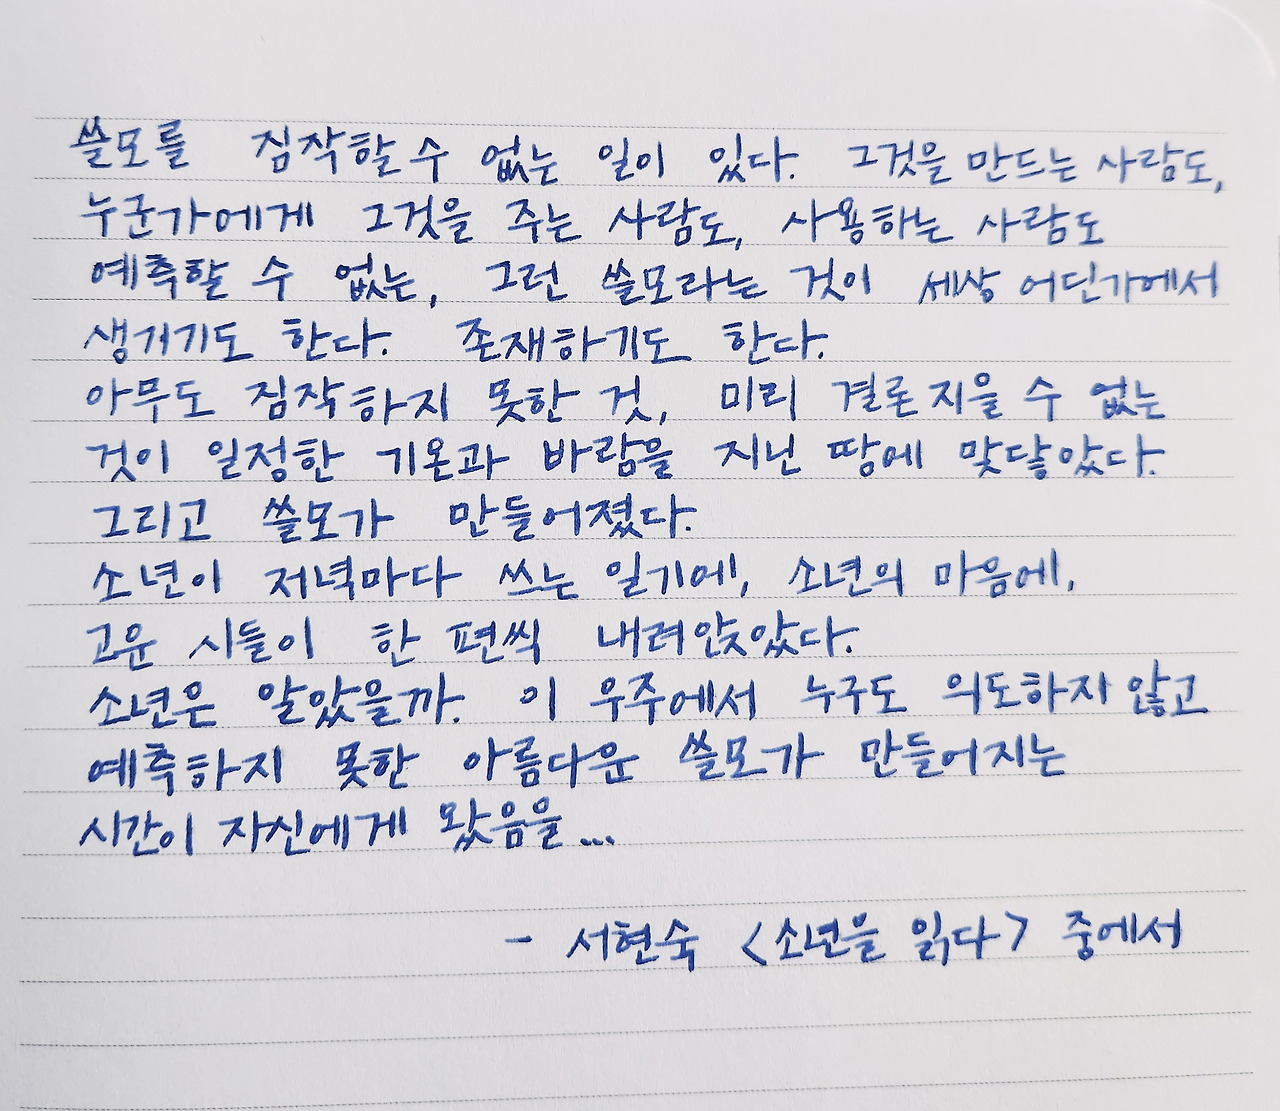 쓸모를 짐작할 수 없는 일이 있다. 그것을 만드는 사람도,
누군가에게 그것을 주는 사람도, 사용하는 사람도
예측할 수 없는, 그런 쓸모라는 것이 세상 어딘가에서
생기기도 한다. 존재하기도 한다.
아무도 짐작하지 못한 것, 미리 결론 지을 수 없는
것이 일정한 기온과 바람을 지닌 땅에 맞닿았다.
그리고 쓸모가 만들어졌다.
소년이 저녁마다 쓰는 일기에, 소년의 마음에,
고운 시들이 한 편씩 내려앉았다.
소년은 알았을까. 이 우주에서 누구도 의도하지 않고
예측하지 못한 아름다운 쓸모가 만들어지는
시간이 자신에게 왔음을...
- 서현숙 <소년을 읽다> 중에서